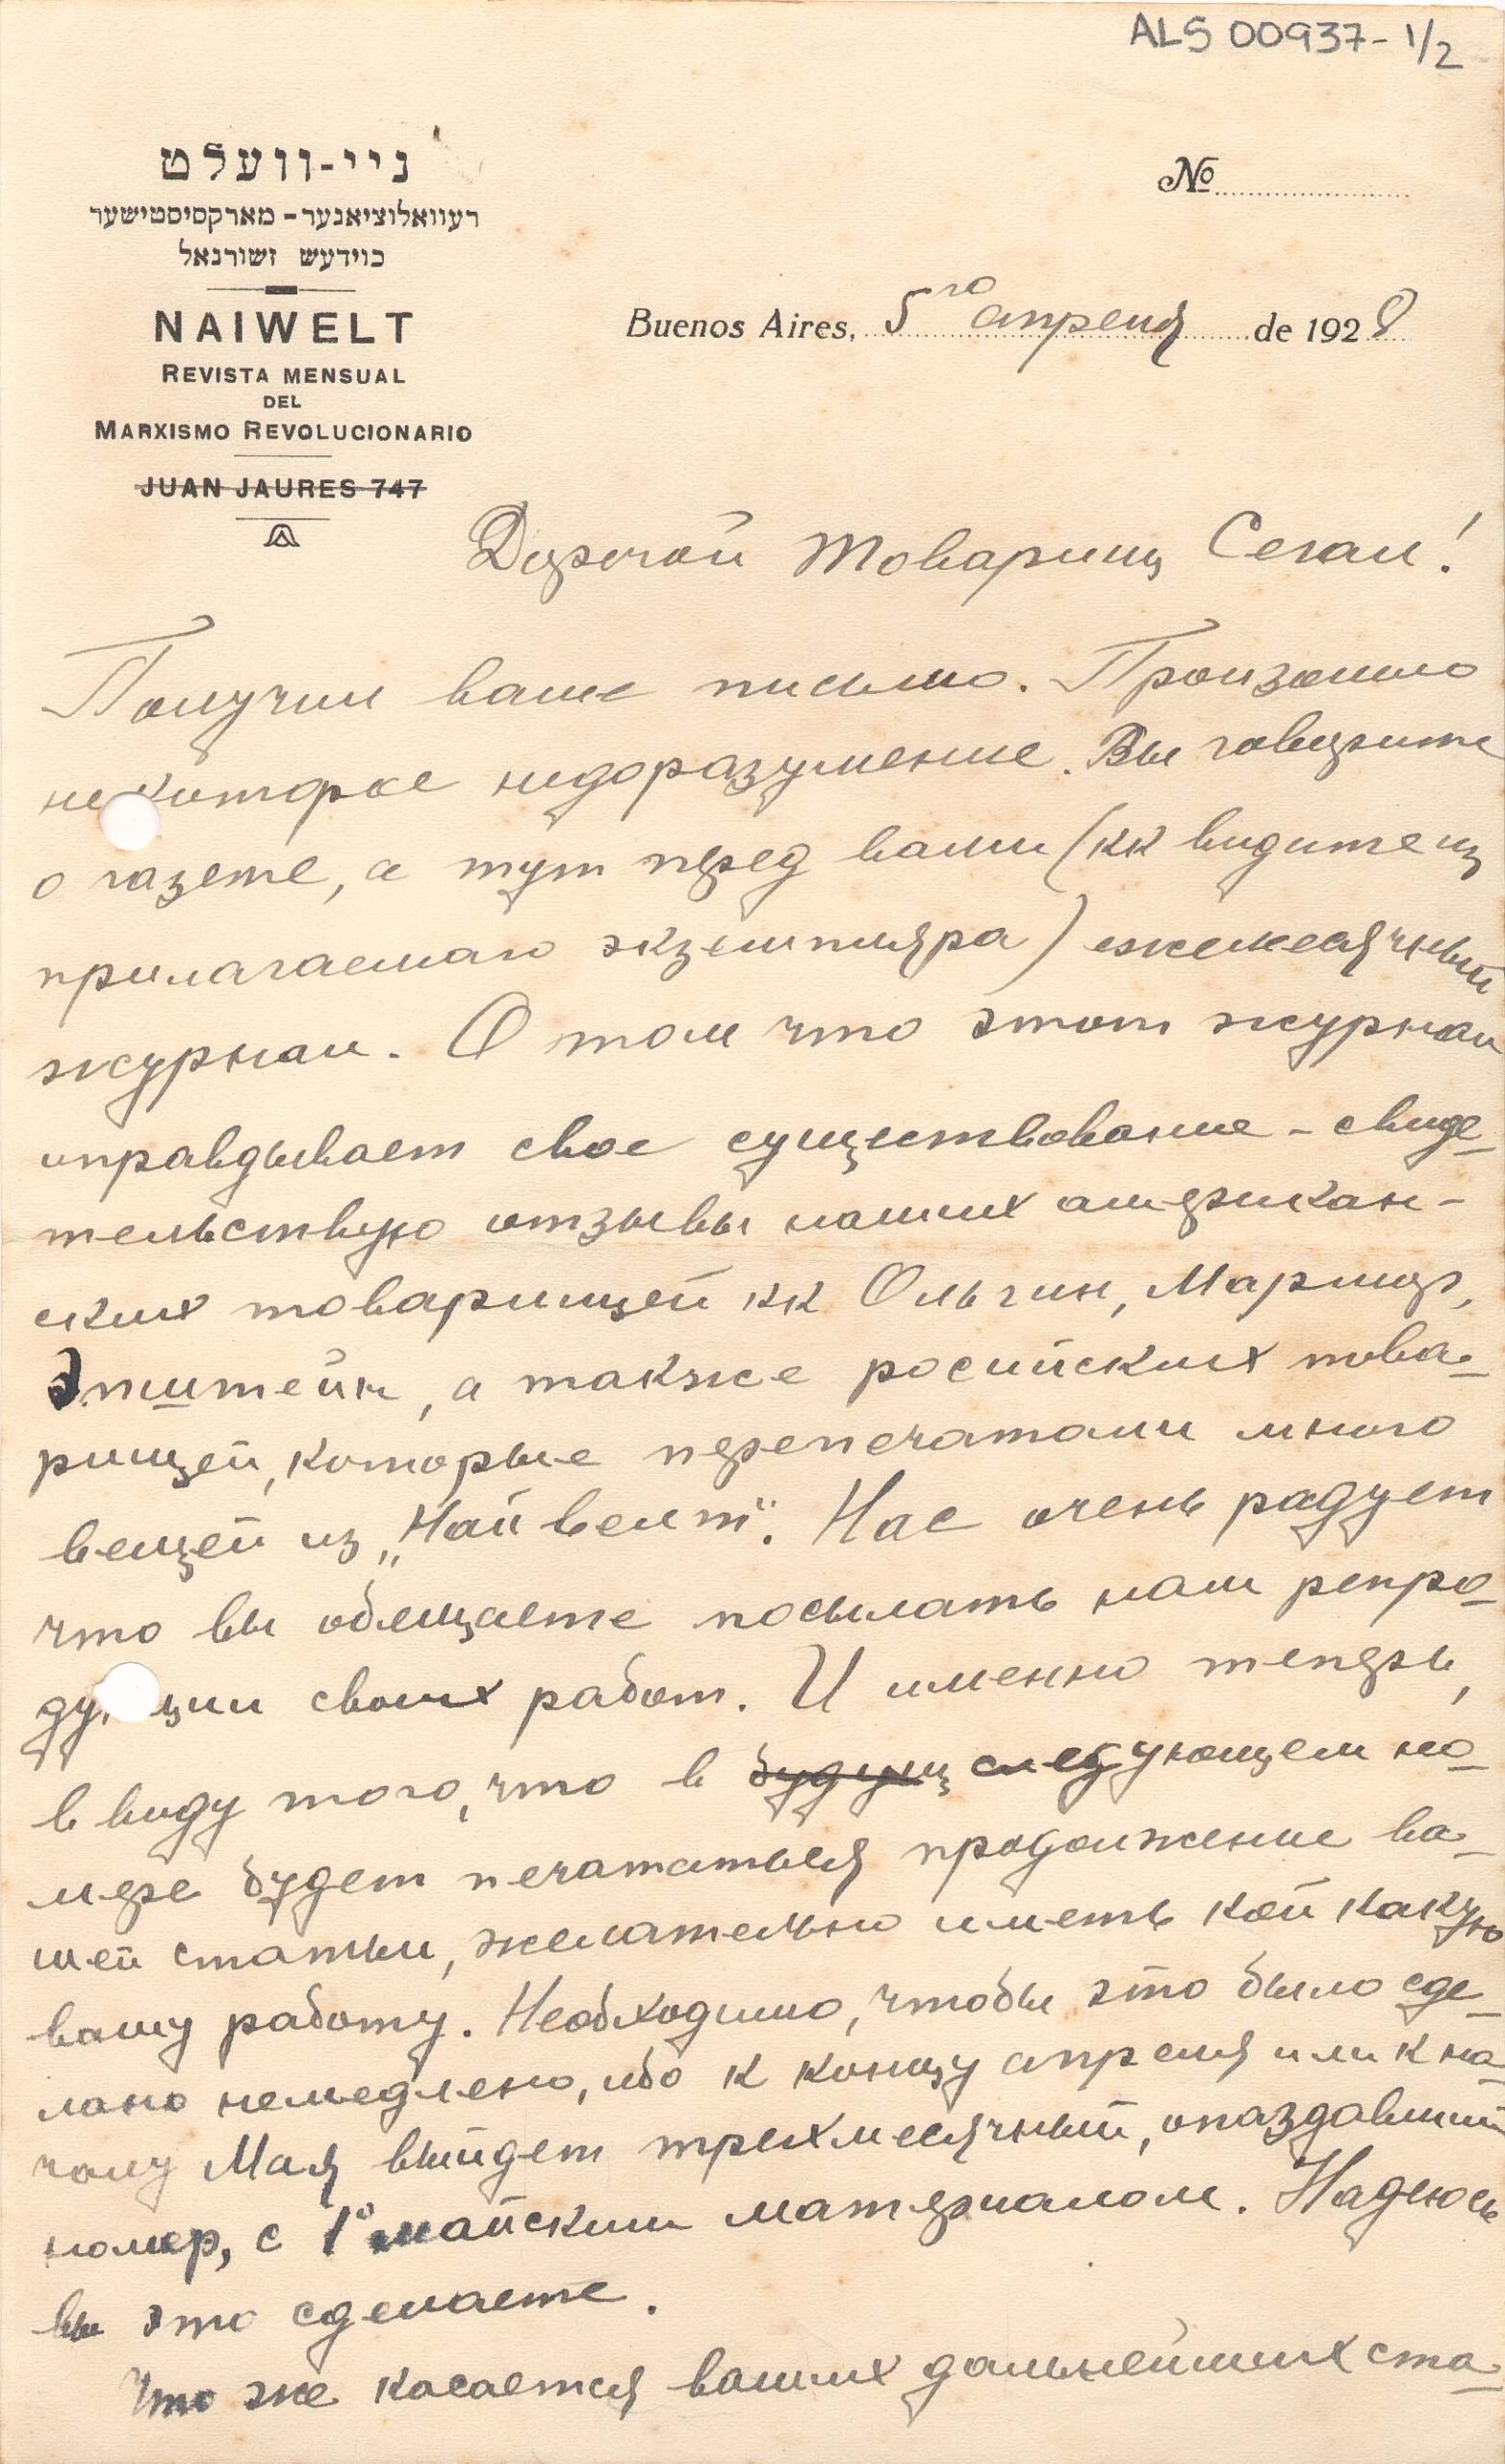 ALS 00937-1/2
ניי-וועלט
רעוואלוציאנער-מארקסיסטישער
כוידעש זשורנאל
NAIWELT
REVISTA MENSUAL
DEL
MARXISMO REVOLUCIONARIO
JUAN JAURES 747
№
Buenos Aires, 5го апреля de 1928
Дорогой товарищ Сегал!
Получил ваше письмо. Произошло
некоторое недоразумение. Вы говорите
о газете, а тут перед вами (кк видите из
прилагаемаго экземпляра) ежемесячный
журнал. О том что этот журнал
оправдывает свое существование - свиде-
тельствую отзывы наших американ-
ских товарищей кк Ольгин, Мармор,
Эпштейн, а также росийских това-
рищей, которые перепечатали много
вещей из „Най велт". Нас очень радует
что вы обещаете посылать нам репро-
дукции своих работ. И именно теперь,
в виду того, что в будущ следующем но-
мере будет печататься продолжение ва-
шей статьи, желательно иметь кой какую
вашу работу. Необходимо, чтобы это было сде-
лано немедлено, ибо к концу апреля или к на-
чалу Мая выйдет трехмесячный, опаздавший
номер, с 1о майским материалом. Надеюсь
вы это сделаете.
Что же касается ваших дальнейших ста-